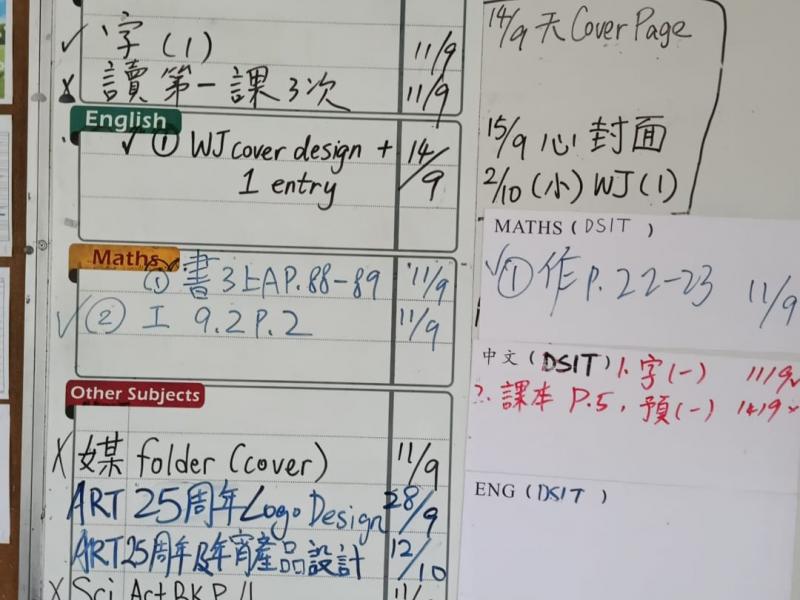 ✓ 字 (1) 11/9
x 讀 第一課 3次 11/9
English
✓ ① WJ cover design + 14/9
1 entry
Maths
① 書3上A P.88-89 11/9
✓ ② 工 9.2 P.2 11/9
Other Subjects
X 媒 folder (cover) 11/9
ART 25周年 Logo Design 28/9
ART 25周年及年宵產品設計 12/10
X Sci Act BK P.11 11/
14/9 天 Cover Page
15/9 心 封面
2/10 (小) WJ (1)
MATHS ( DSIT )
✓ ① 作 P. 22-23 11/9
中文 ( DSIT ) 1. 字 (一) 11/9 ✓
2. 課本 P.5, 預(一) 14/9 x
ENG ( DSIT )